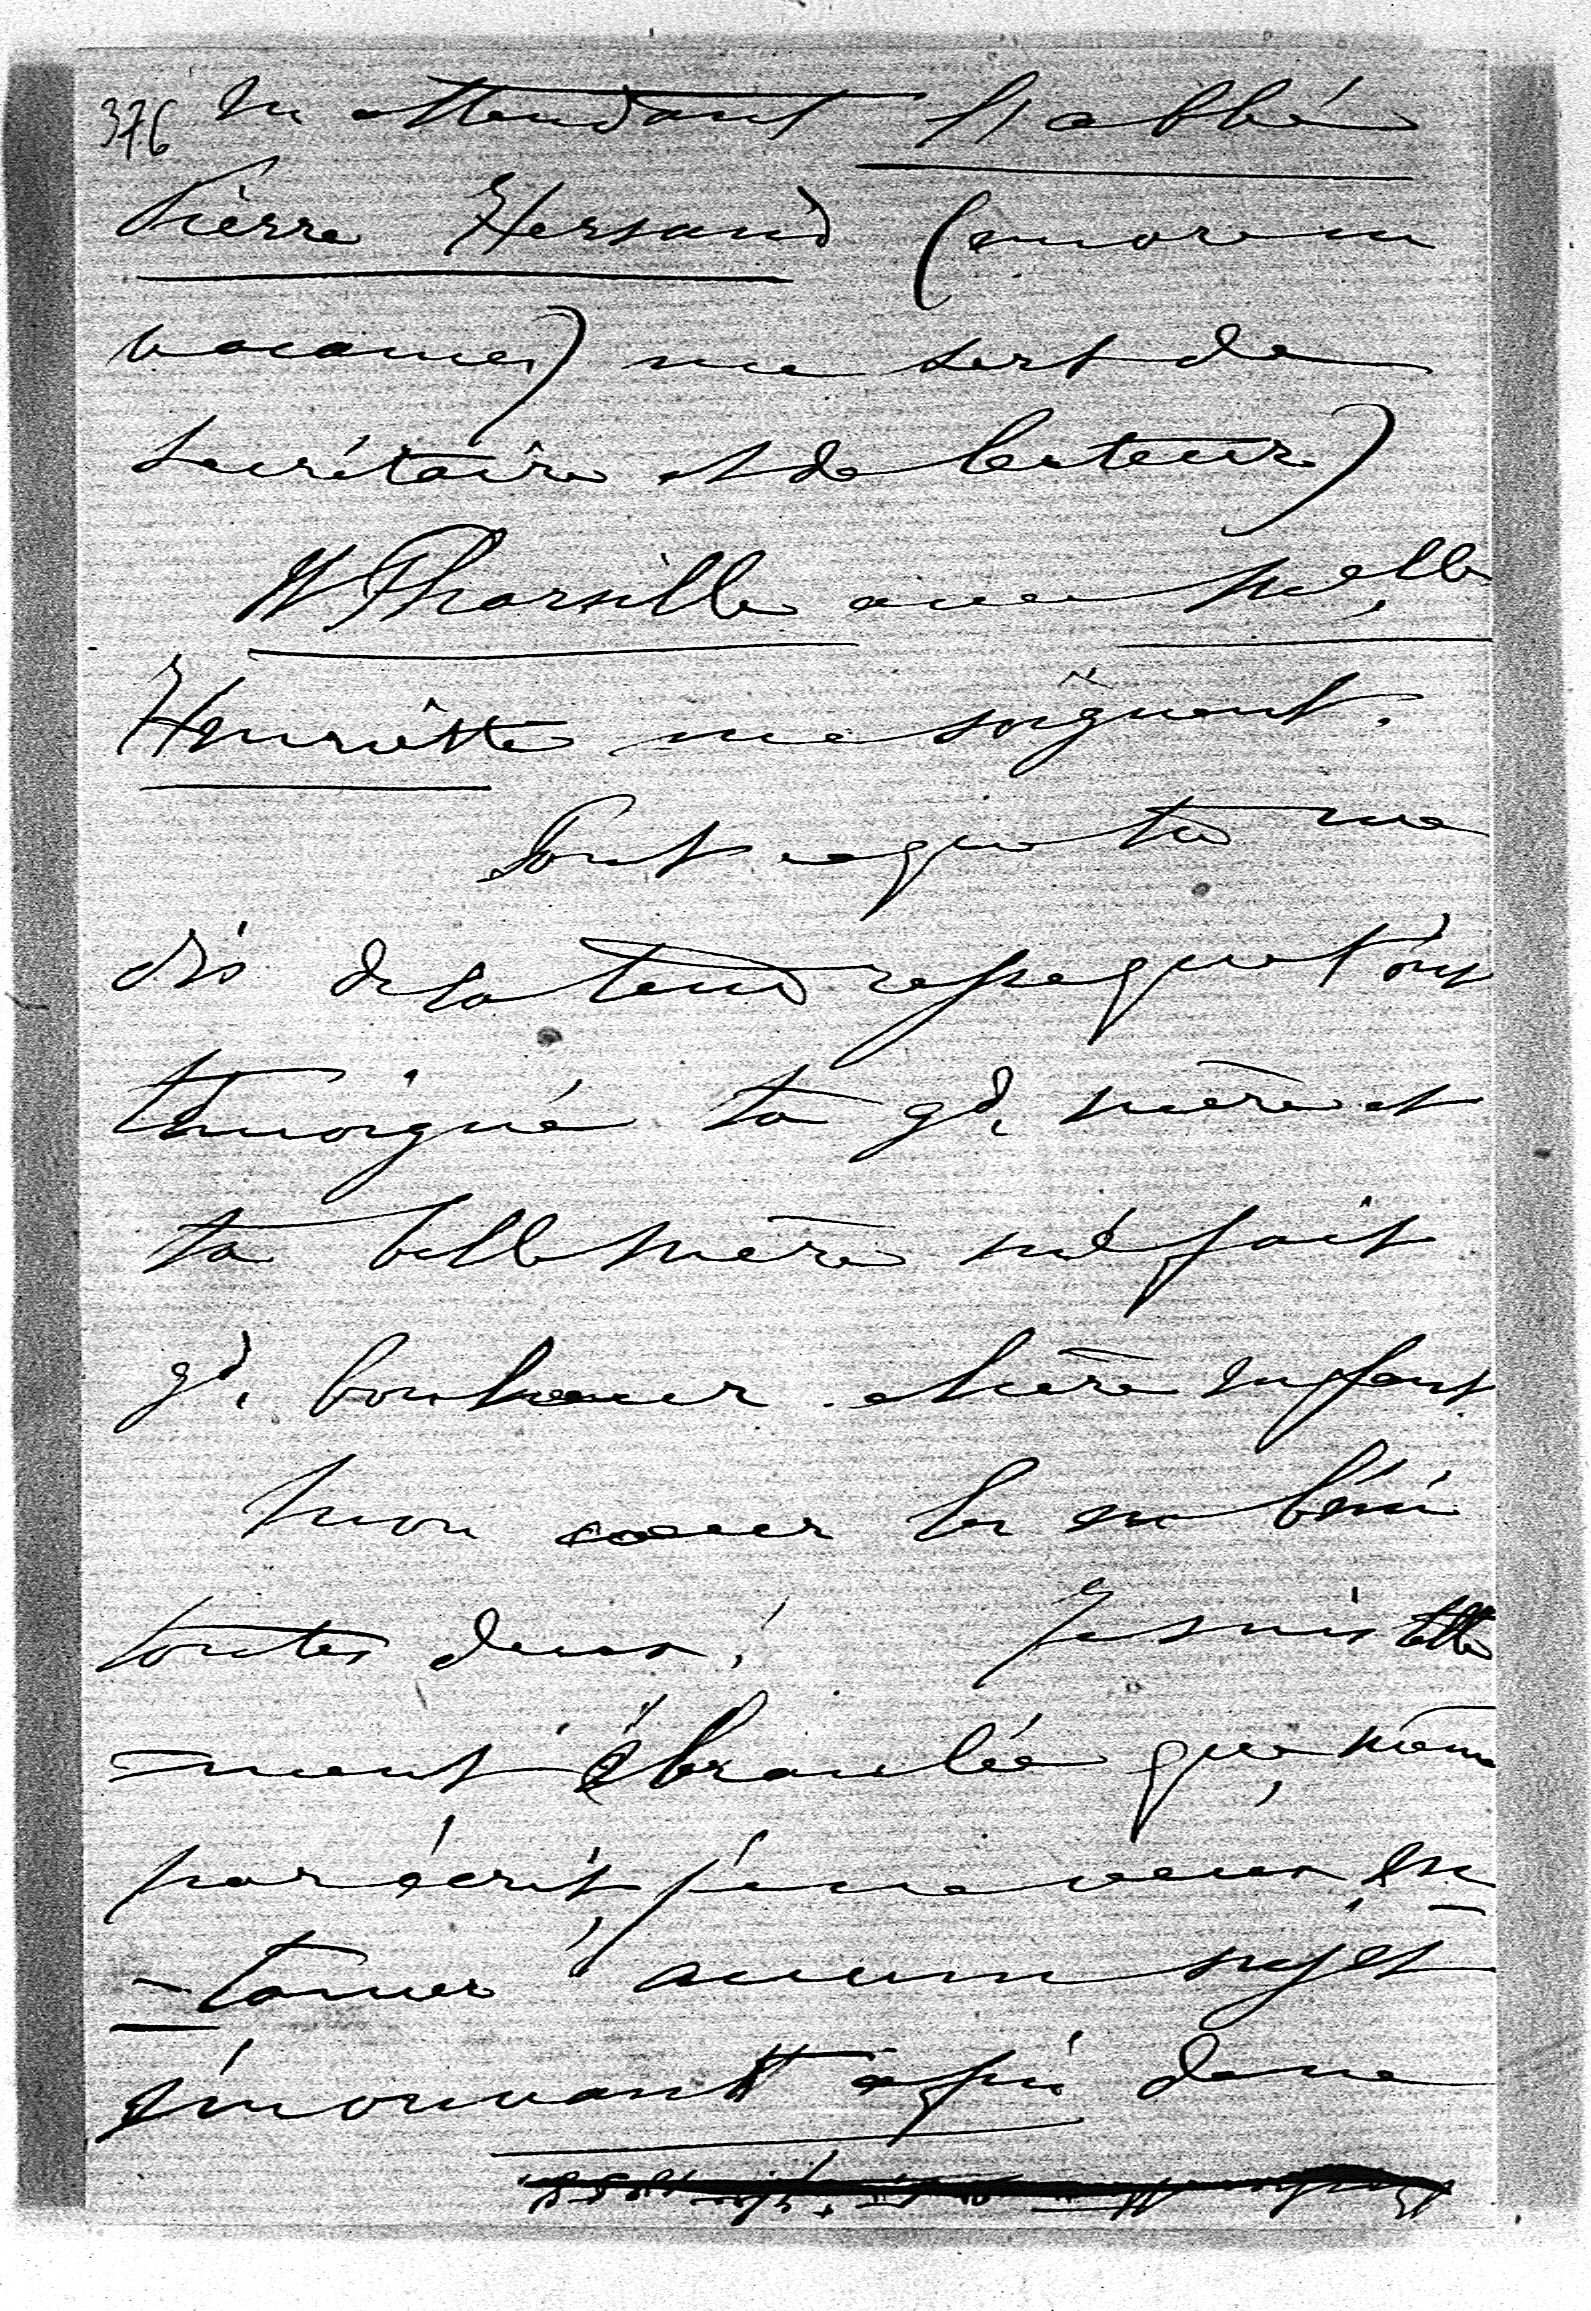 376 En attendant l'abbé
Pierre Hersand (encore en
vacances) me sert de
secrétaire et de lecteur)
avec Melle
Henriette me soignent.
Tout ce que tu me
dis de la tendresse que t'ont
témoigné ta gd, mère et
ta belle mère me fait
gd, bonheur chère enfant
Mon cœur les en bénit
toutes deux ! Je suis telle
=ment ébranlée que, même
par écrit, je ne veux En
-tamer aucun sujet
émouvant afin de ne